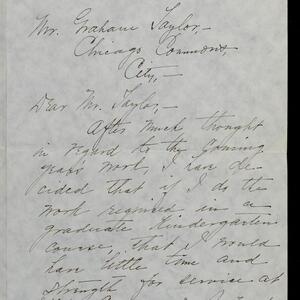 Mr. Graham Taylor,—
Chicago Commons,
City,—
Dear Mr. Taylor,—
After much thought
in regard to the coming
years work, I have de-
cided that if I do the
work required in a
graduate Kindergarten
course, that I would
have little time and
strength for service at